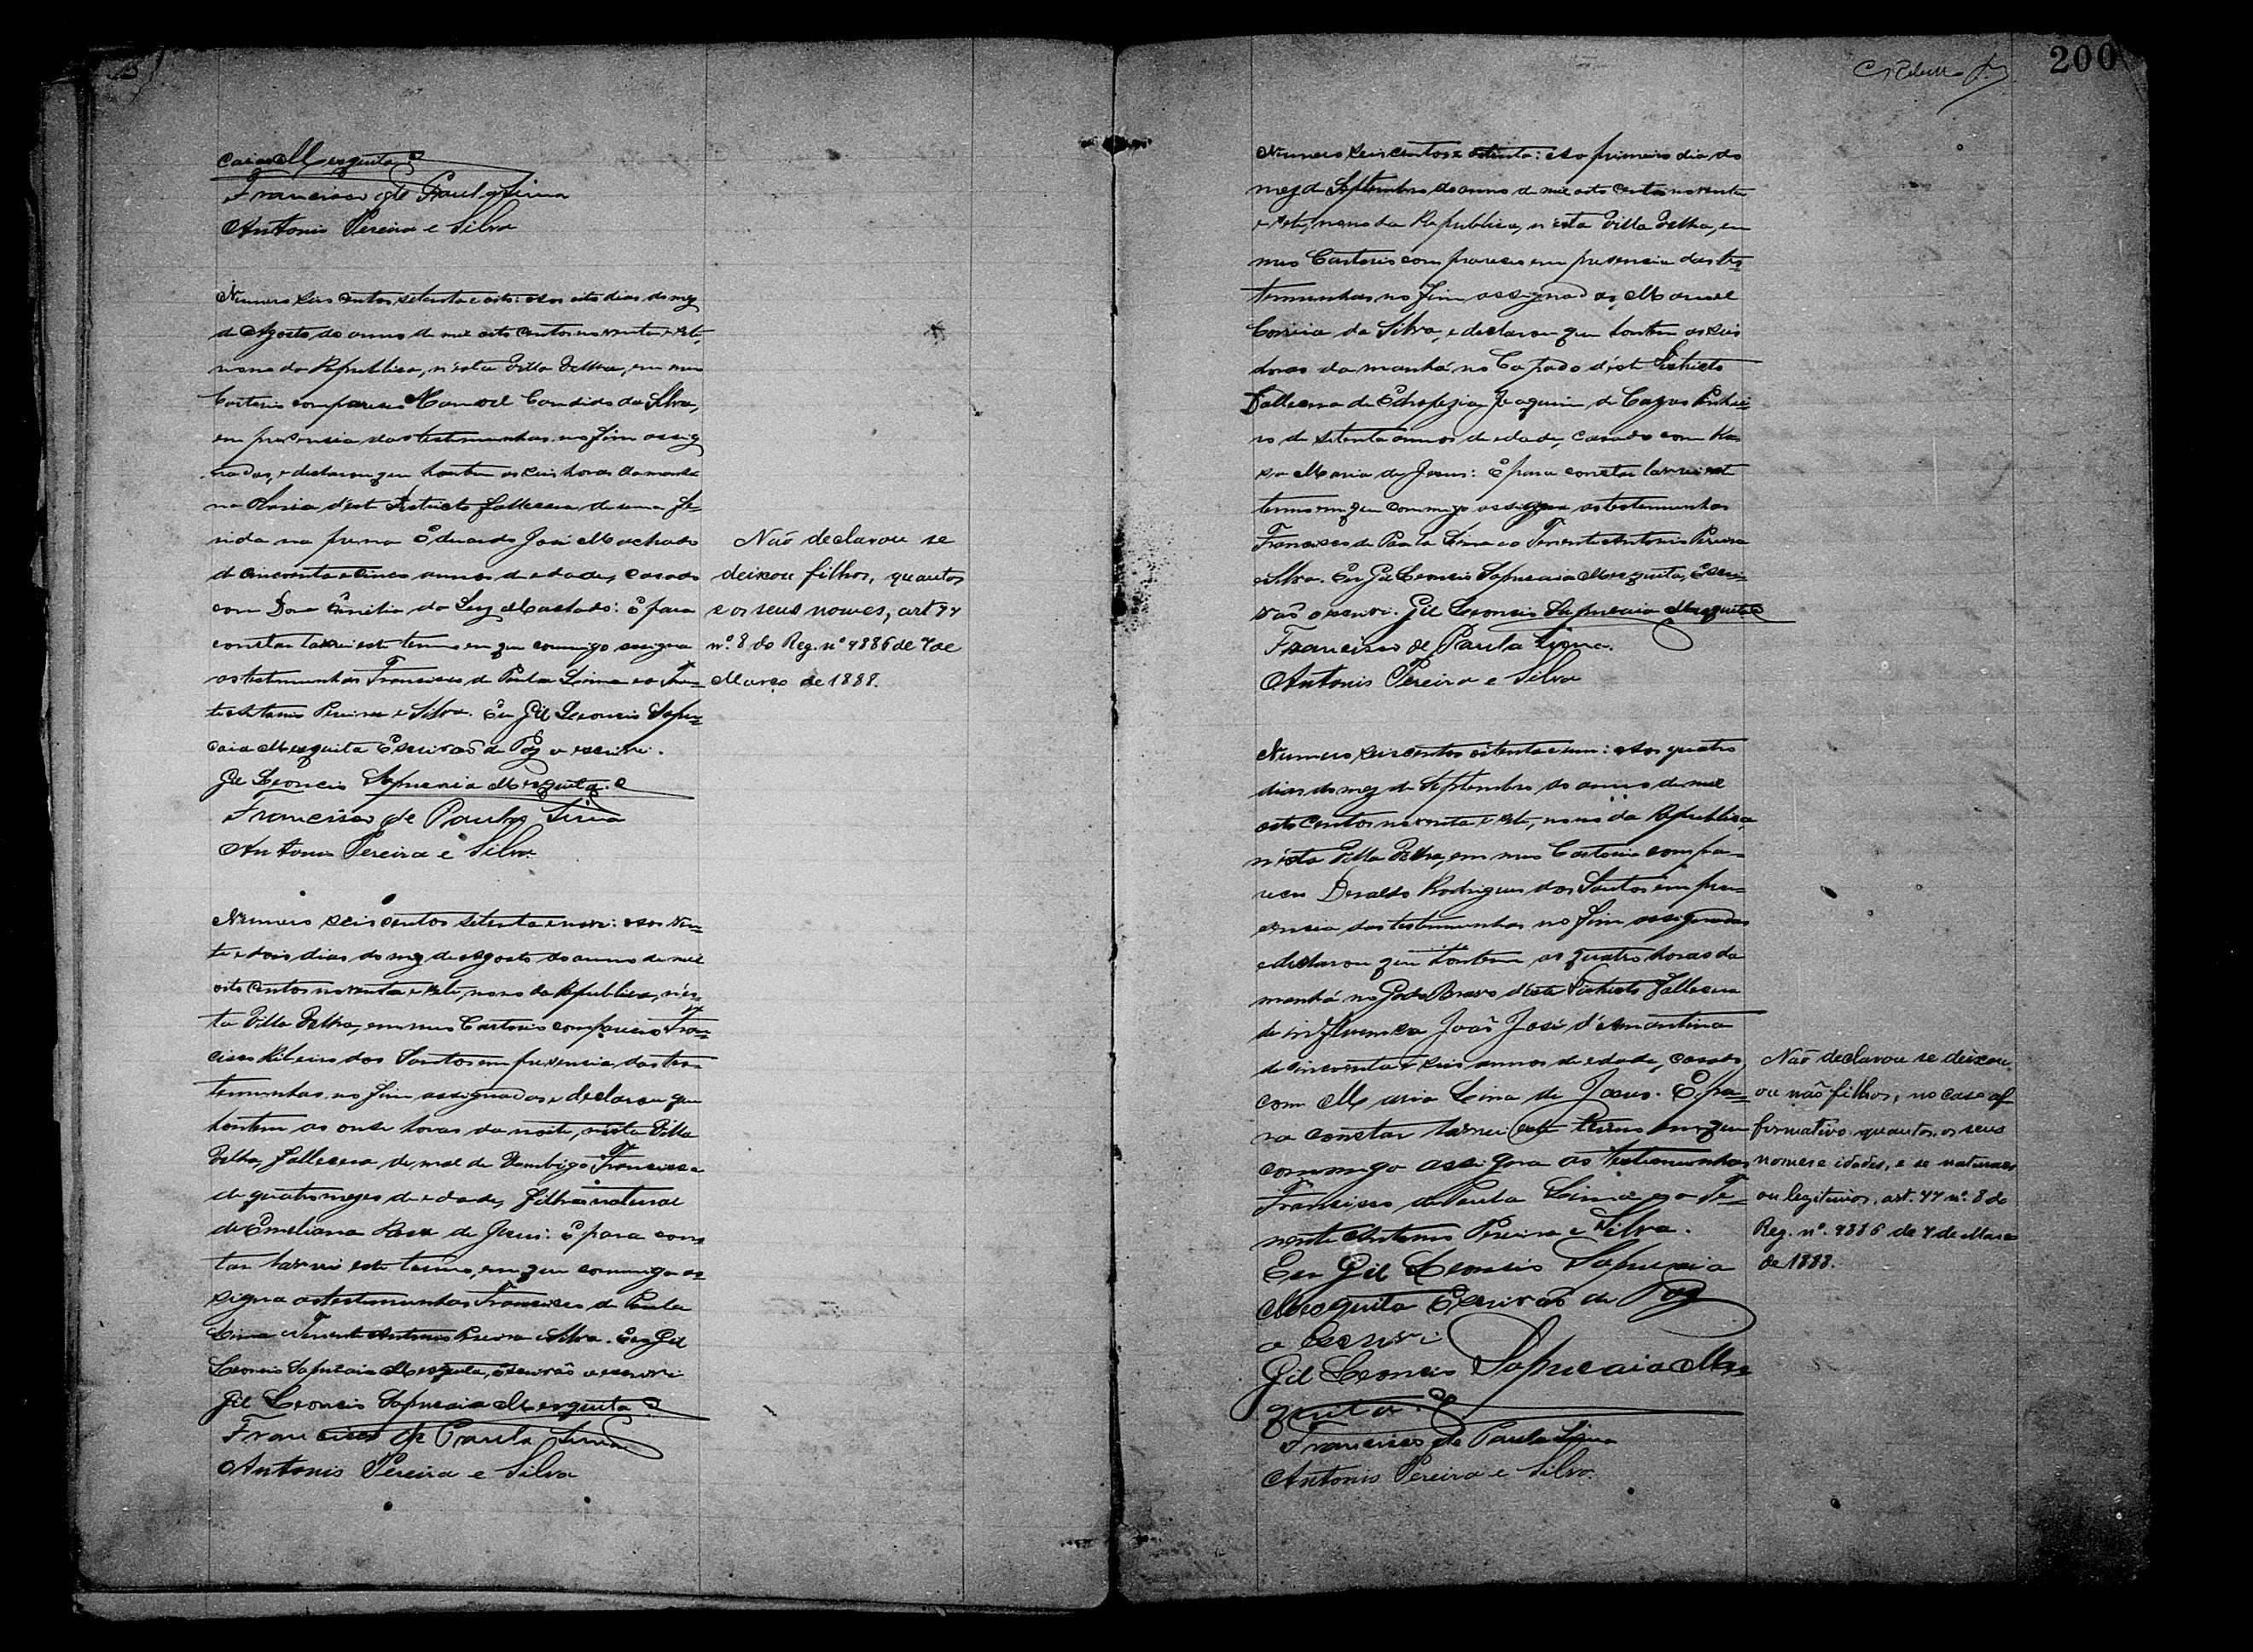 caia Mesquita
Francisco de Paula Lima
Antonio Pereira e Silva
Numero seis centos setenta e oito: Aos oito dias do mez
de Agosto do anno de mil oito centos noventa e sete,
nono da Republica, n'esta Villa Velha, em meu
Cartorio compareceo Manoel Candido da Silva,
em presencia das testemunhas no fim assig
nadas, e declarou que hontem as seis horas da manhã
na d'este Districto falleceu de uma fe-
rida na perna Eduardo José Machado
de cincoenta e cinco annos de edade, casado
com Dona Emilia da Luz Machado: E para
constar lavrei este termo em que commigo assigna
as testemunhas Francisco de Paula Lima e o Tenen-
te Antonio Pereira e Silva. Eu Gil Leoncio Sapu-
caia Mesquita Escrivão de Paz o escrevi.
Gil Leoncio Sapucaia Mesquita
Francisco de Paula Lima
Antonio Pereira e Silva
Não declarou se
deixou filhos, quantos
e os seus nomes, art 77
nº. 8 do Reg. nº 9886 de 7 de
Março de 1888.
Numero seis centos setenta e nove: Aos vin-
te e dois dias do mez de Agosto do anno de mil
oito centos noventa e sete, nono da Republica, n'es-
ta Villa Velha, em meu Cartorio compareceo Fran-
cisco Ribeiro dos Santos em presencia das tes-
temunhas no fim assignadas e declarou que
hontem as onze horas da noite, nesta Villa
Velha, falleceu de mal de Umbigo Francisca
de quatro mezes de edade, filha natural
de Emeliana Rosa de Jesus: E para cons
tar lavrei este termo, em que commigo as-
signa as testemunhas Francisco de Paula
Lima e Tenente Antonio Pereira e Silva. Eu Gil
Leoncio Sapucaia Mesquita, Escrivão o escrevi
Gil Leoncio Sapucaia Mesquita
Francisco de Paula Lima
Antonio Pereira e Silva
200
Numero seis centos e oitenta: Ao primeiro dia do
mez de Septembro do anno de mil oito centos noventa
e sete, nono da Republica, n'esta Villa Velha, em
meu Cartorio compareceo em presencia das tes-
temunhas no fim assignadas, Manoel
Correia da Silva, e declarou que hontem as seis
horas da manhã no Capado d'este Districto
Falleceu de Joaquim de Pinhei-
ro de setenta annos de edade, casado com Ro-
sa Maria de Jesus: E para constar lavrei este
termo em que commigo assigna as testemunhas
Francisco de Paula Lima e o Tenente Antonio Pereira
e Silva. Eu Gil Leoncio Sapucaia Mesquita, Escri-
vão o escrevi. Gil Leoncio Sapucaia Mesquita
Francisco de Paula Lima.
Antonio Pereira e Silva
Numero seis centos oitenta e um: Aos quatro
dias do mez de Septembro do anno de mil
oito centos noventa e sete, nono da Republica,
n'esta Villa Velha, em meu Cartorio compa-
receu Rodrigues dos Santos em pre-
sencia das testemunhas no fim assignadas
e declarou que hontem as quatro horas da
manhã no Bravo d'este Districto falleceu
de influenca João José d'Amantina
de cincoenta e seis annos de edade, casado
com Maria Lina de Jesus. E pa-
ra constar lavrei este termo em que
commigo assigna as testemunhas
Francisco de Paula Lima e o Te-
nente Antonio Pereira e Silva.
Eu Gil Leoncio Sapucaia
Mesquita Escrivão de Paz
o Escrevi
Gil Leoncio Sapucaia Mes
quita.
Francisco de Paula Lima
Antonio Pereira e Silva.
Não declarou se deixou
ou não filhos, no caso af-
firmativo quantos, os seus
nomes e idades, e se naturaes
ou legitimos, art. 77 nº. 8 do
Reg. nº. 9886 de 7 de Março
de 1888.